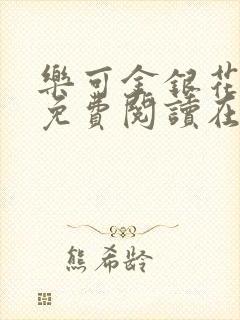 樂可金銀花
免費閱讀在
熊希齡